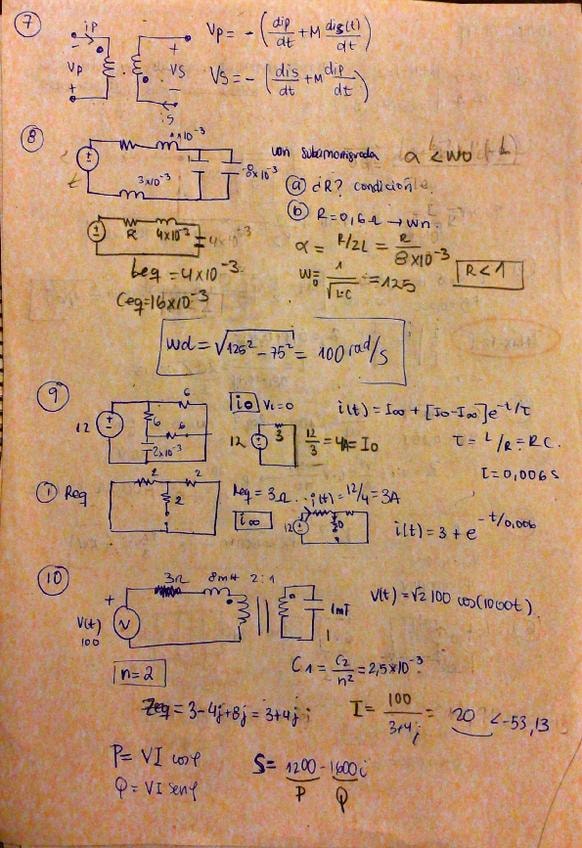 7
ip
-
Vp
+
+
Vs
-
is
Vp = - ( dip/dt + M dis(t)/dt )
Vs = - ( dis/dt + M dip/dt )
8
3x10⁻³
8x10⁻³
von subamortiguada α < wo
a ¿R? condición
b R = 0,6Ω → wn
R 4x10⁻³ 4x10⁻³
α = R/2L = R/8x10⁻³
Leq = 4x10⁻³
Ceq = 16x10⁻³
wo = 1/√LC = 125 R < 1
wd = √125² - 75² = 100 rad/s
9
6
12 6
6
2x10⁻³
io Vc = 0 i(t) = I∞ + [Io - I∞] e^-t/τ
12 3 12/3 = 4A = Io τ = L/R = RC.
τ = 0,006 s
1 Req 2 2
2
Req = 3Ω i(t) = 12/4 = 3A
i∞ 12
i(t) = 3 + e^-t/0,006
10
3Ω 8mH 2:1
+
V(t)
100
1mF
v(t) = √2 100 cos(1000t)
n = 2
C1 = C2/n² = 2,5x10⁻³
Zeq = 3 - 4j + 8j = 3 + 4j
I = 100/3+4j = 20 <-53,13
P = VI cosφ
Q = VI senφ
S = 1200 - 1600i
P Q